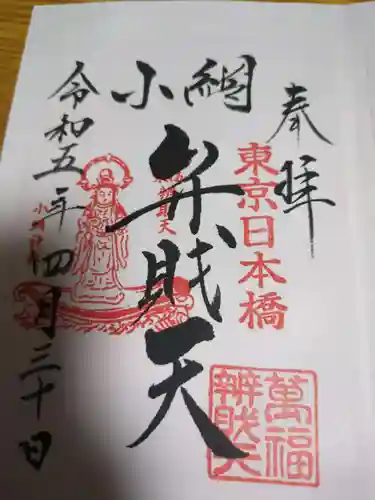 奉拝
東京日本橋
小網
弁財天
萬福
辨財天
令和五年四月三十日